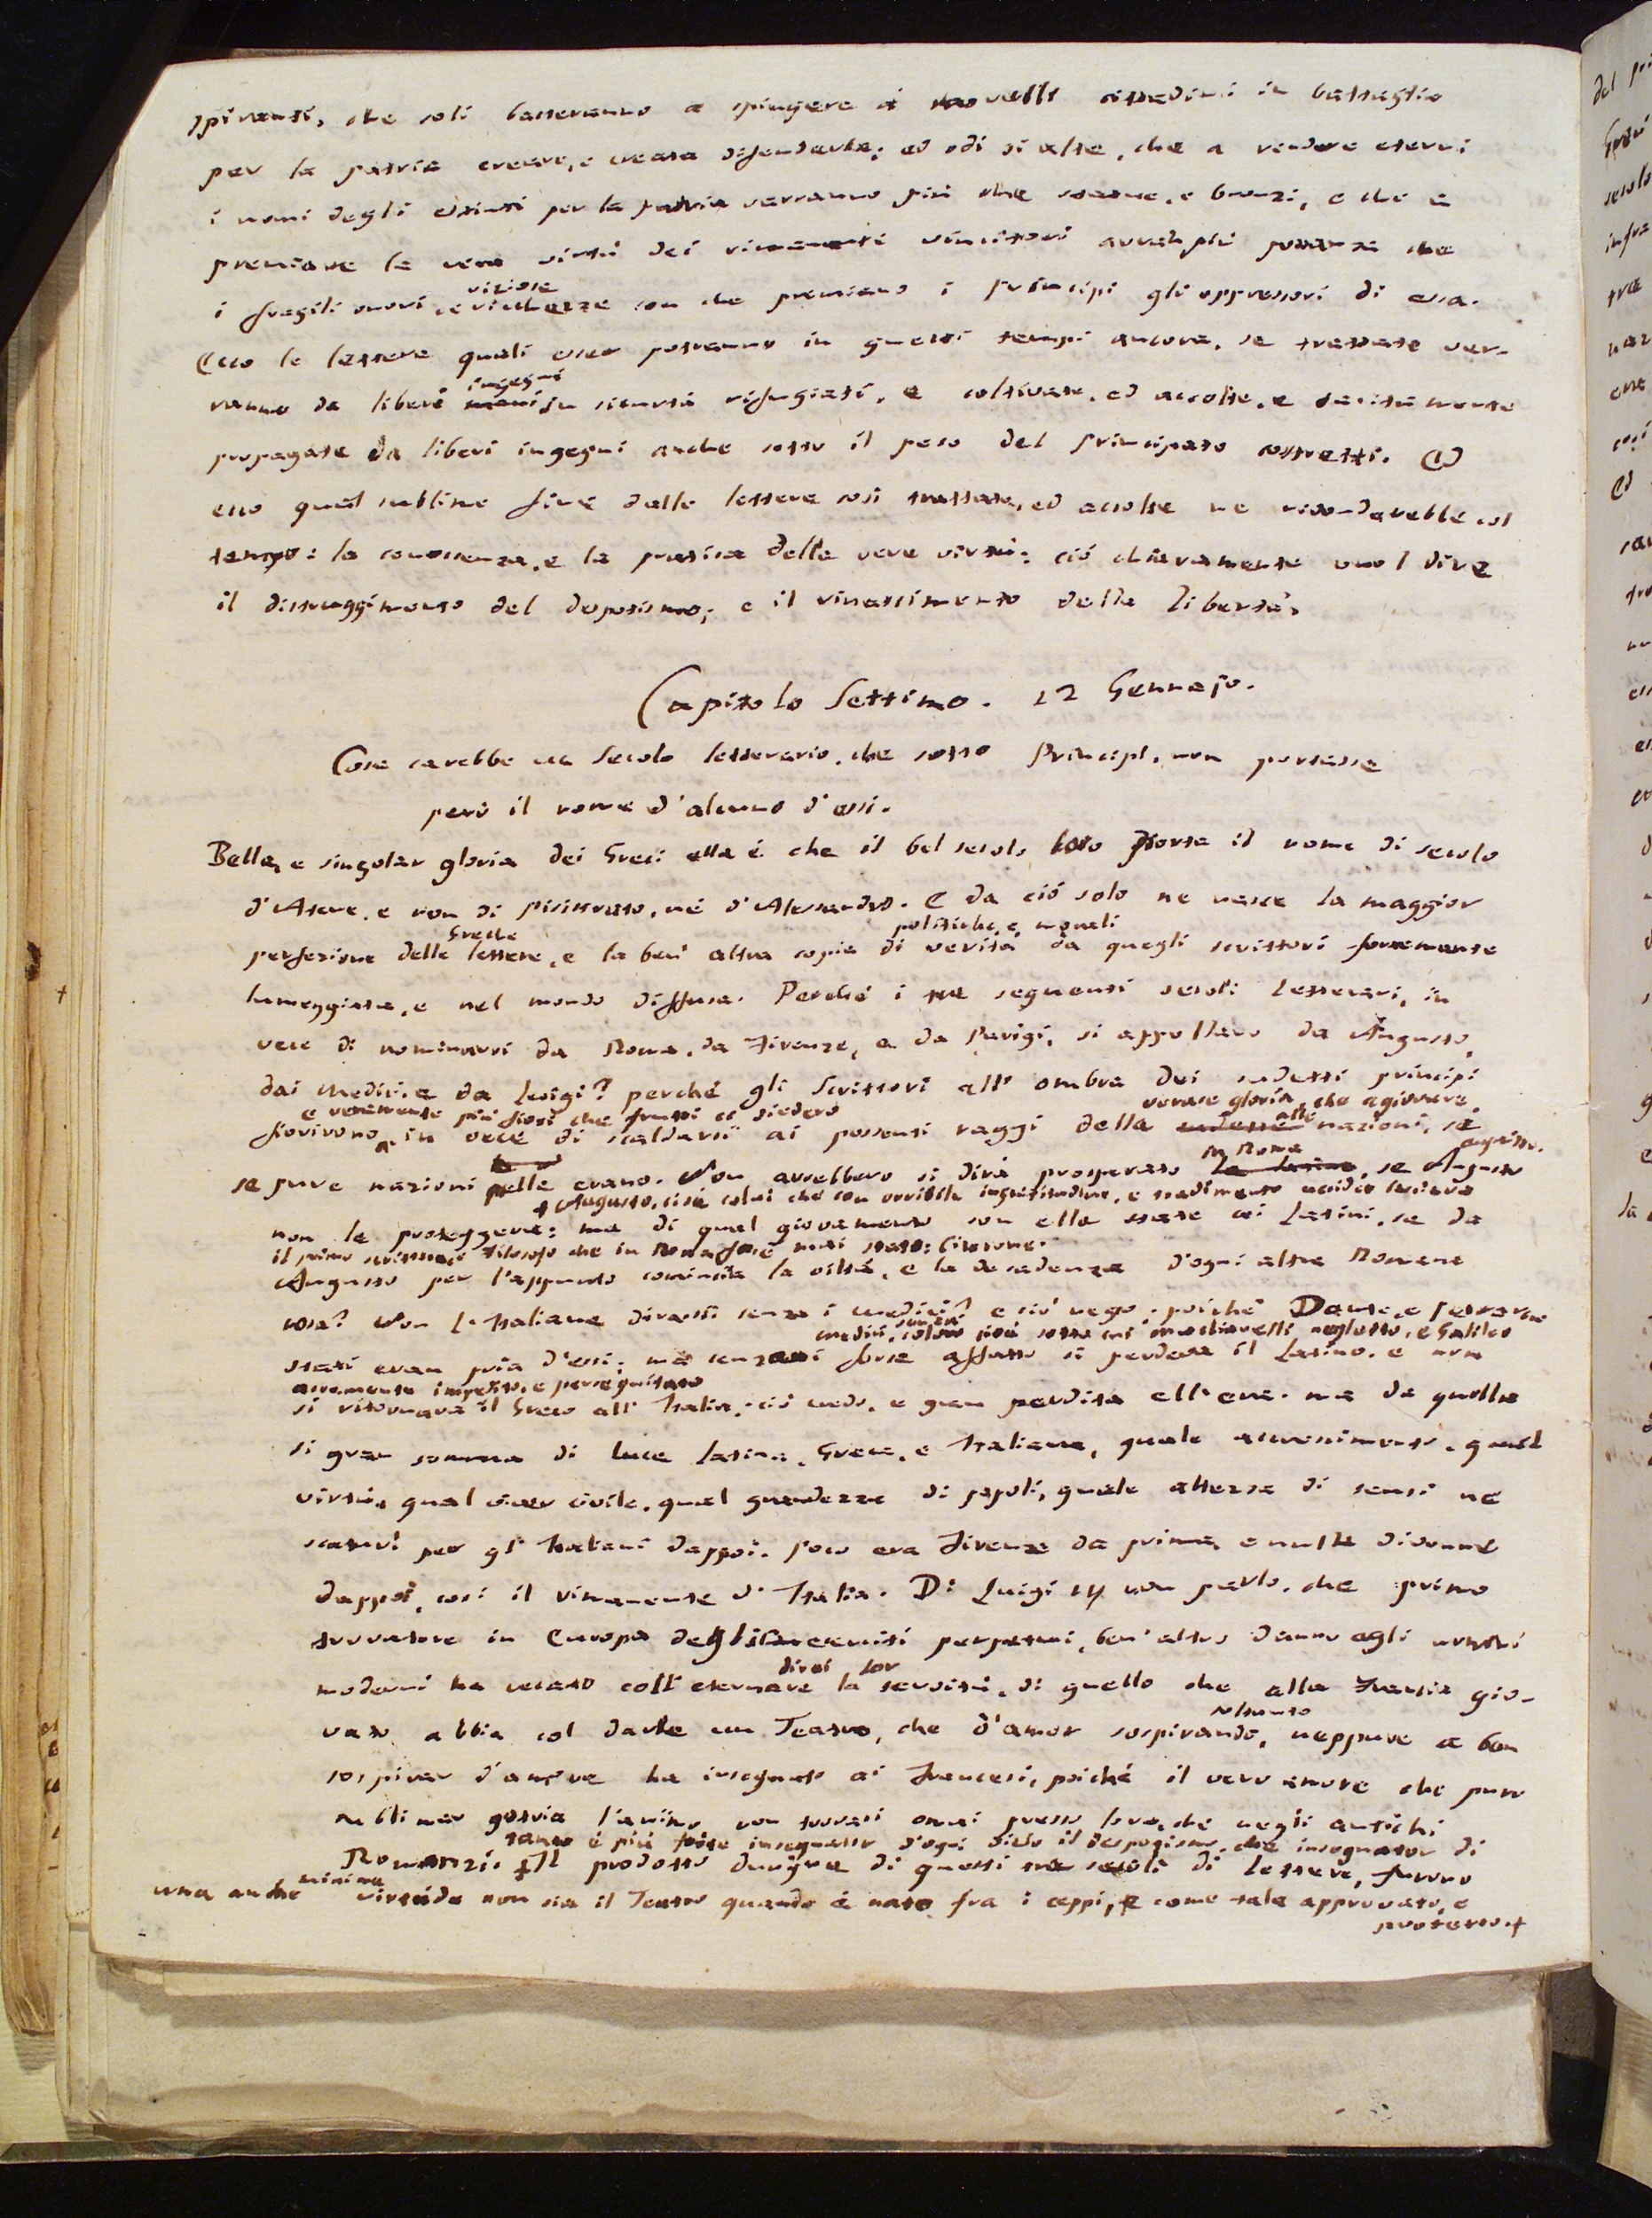 spiranti, che soli basteranno a spingere i novelli cittadini in battaglia
per la patria creare, e creata difenderla; ed odi sì alte, che a rendere eterni
i nomi degli estinti per la patria varranno più che statue, e bronzi, e che a
premiare la vera virtù dei rimanenti vincitori avran più possanza che
viziose
i fragili onori, e ricchezze con che premiano i principi gli oppressori di essa.
Ecco le lettere quali esser potranno in questi tempi ancora, se trattate ver-
ingegni
ranno da liberi mani in sicurtà rifugiati, e coltivate, ed accolte, e tacitamente
propagate da liberi ingegni anche sotto il peso del principato costretti. Ed
ecco qual sublime fine dalle lettere così trattate, ed accolte ne ridonderebbe col
tempo: la conoscenza, e la pratica delle vere virtù; ciò chiaramente vuol dire
il distruggimento del despotismo, e il rinascimento della libertà.
Capitolo Settimo. 12 Gennajo.
Cosa sarebbe un secolo letterario, che sotto Principi, non portasse
però il nome d'alcuno d'essi.
Bella, e singolar gloria dei Greci ella è che il bel secolo loro porta il nome di secolo
d'Atene, e non di Pisistrato, né d'Alessandro. E da ciò solo ne nasce la maggior
Greche politiche, e morali
perfezione delle lettere, e la ben' altra copia di verità da quegli scrittori fortemente
lumeggiata, e nel mondo diffusa. Perché i tre seguenti secoli letterari, in
vece di nominarsi da Roma, da Firenze, e da Parigi, si appellano da Augusto,
dai Medici, e da Luigi? perché gli scrittori all' ombra dei sudetti principi
e veramente più fiori che frutti ci diedero verace gloria, che a giovare
fiorirono, in vece di scaldarsi ai possenti raggi della alle nazioni, se
In Roma acquisto.
se pure nazioni pelle erano. Non avrebbero si dirà prosperato le latine, se Augusto
+ Augusto, cioè colui che con orribile ingratitudine, e tradimento uccider lasciava
non le proteggeva: ma di qual giovamento son elle state ai Latini, se da
il primo scrittore, e filosofo che in Roma fosse mai stato: Cicerone.
Augusto per l'appunto comincia la viltà, e la decadenza d'ogni altra Romana
cosa? Non l'Italiane dirassi senza i Medici? e ciò nego; poiché Dante, e Petrarca
Medici, cioè sotto cui Machiavelli negletto, e Galileo
stati eran pria d'essi; ma senz'essi forse affatto si perdeva il Latino, e non
aspramente impedito, e perseguitato
si ritornava il Greco all' Italia, ciò credo, e gran perdita ell'era. ma da quella
sì gran somma di luce latina, Greca, e Italiana, quale accrescimento, qual
virtù, qual viver civile, qual grandezza di popoli, quale altezza di sensi ne
scaturì per gl' Italiani dappoi. Poco era Firenze da prima, e nulla divenne
dappoi, così il rimanente d' Italia. Di Luigi 14 non parlo, che primo
trovatore in Europa degli eserciti perpetui, ben' altro danno agli uomini
direi lor
moderni ha recato coll'eternare la servitù, di quello che alla Francia gio-
soltanto
vato abbia col darle un Teatro, che d'amor sospirando, neppure a ben
sospirar d'amore ha insegnato ai Francesi, poiché il vero amore che puro
sublimar potria l'animo non trovasi omai presso loro, che negli antichi
tanto è più forte insegnator d'ogni vizio il despotismo, che insegnator di
Romanzi. + Il prodotto dunque di questi tre secoli di lettere, furono
una anche minima virtude non sia il Teatro quando è nato fra i ceppi, e come tale approvato, e
protetto +